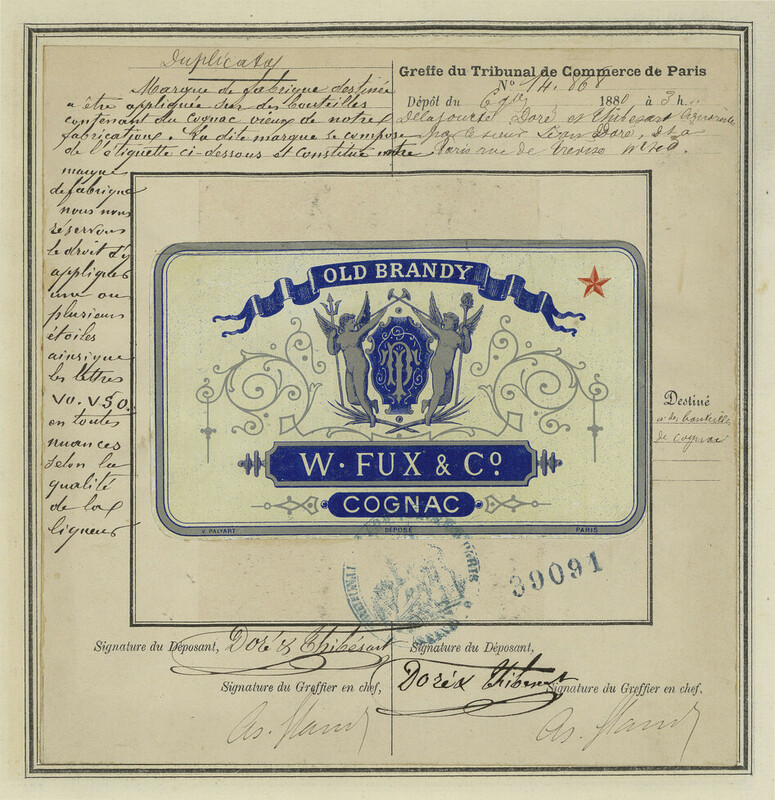 Duplicata
Marque de fabrique destinée
a être appliquée sur des bouteilles
contenant du cognac vieux de notre
fabrication. La dite marque se compose
de l'étiquette ci-dessous et constitue notre
marque
de fabrique
nous nous
réservons
le droit d'y
appliquer
une ou
plusieurs
étoiles
ainsi que
les lettres
VO. VSO.
en toutes
nuances
selon la
qualité
de la
liqueur
Greffe du Tribunal de Commerce de Paris
N° 14.868
Dépôt du 1880 à 3 h
Doré et Thibesart
par le sieur Doré
Paris rue de Trévise
OLD BRANDY
W. FUX & Co.
COGNAC
V. PALYART
DÉPOSÉ
PARIS
Destiné
à des bouteilles
de cognac
39091
Signature du Déposant, Doré & Thibesart
Signature du Déposant,
Doré & Thibesart
Signature du Greffier en chef,
Signature du Greffier en chef,